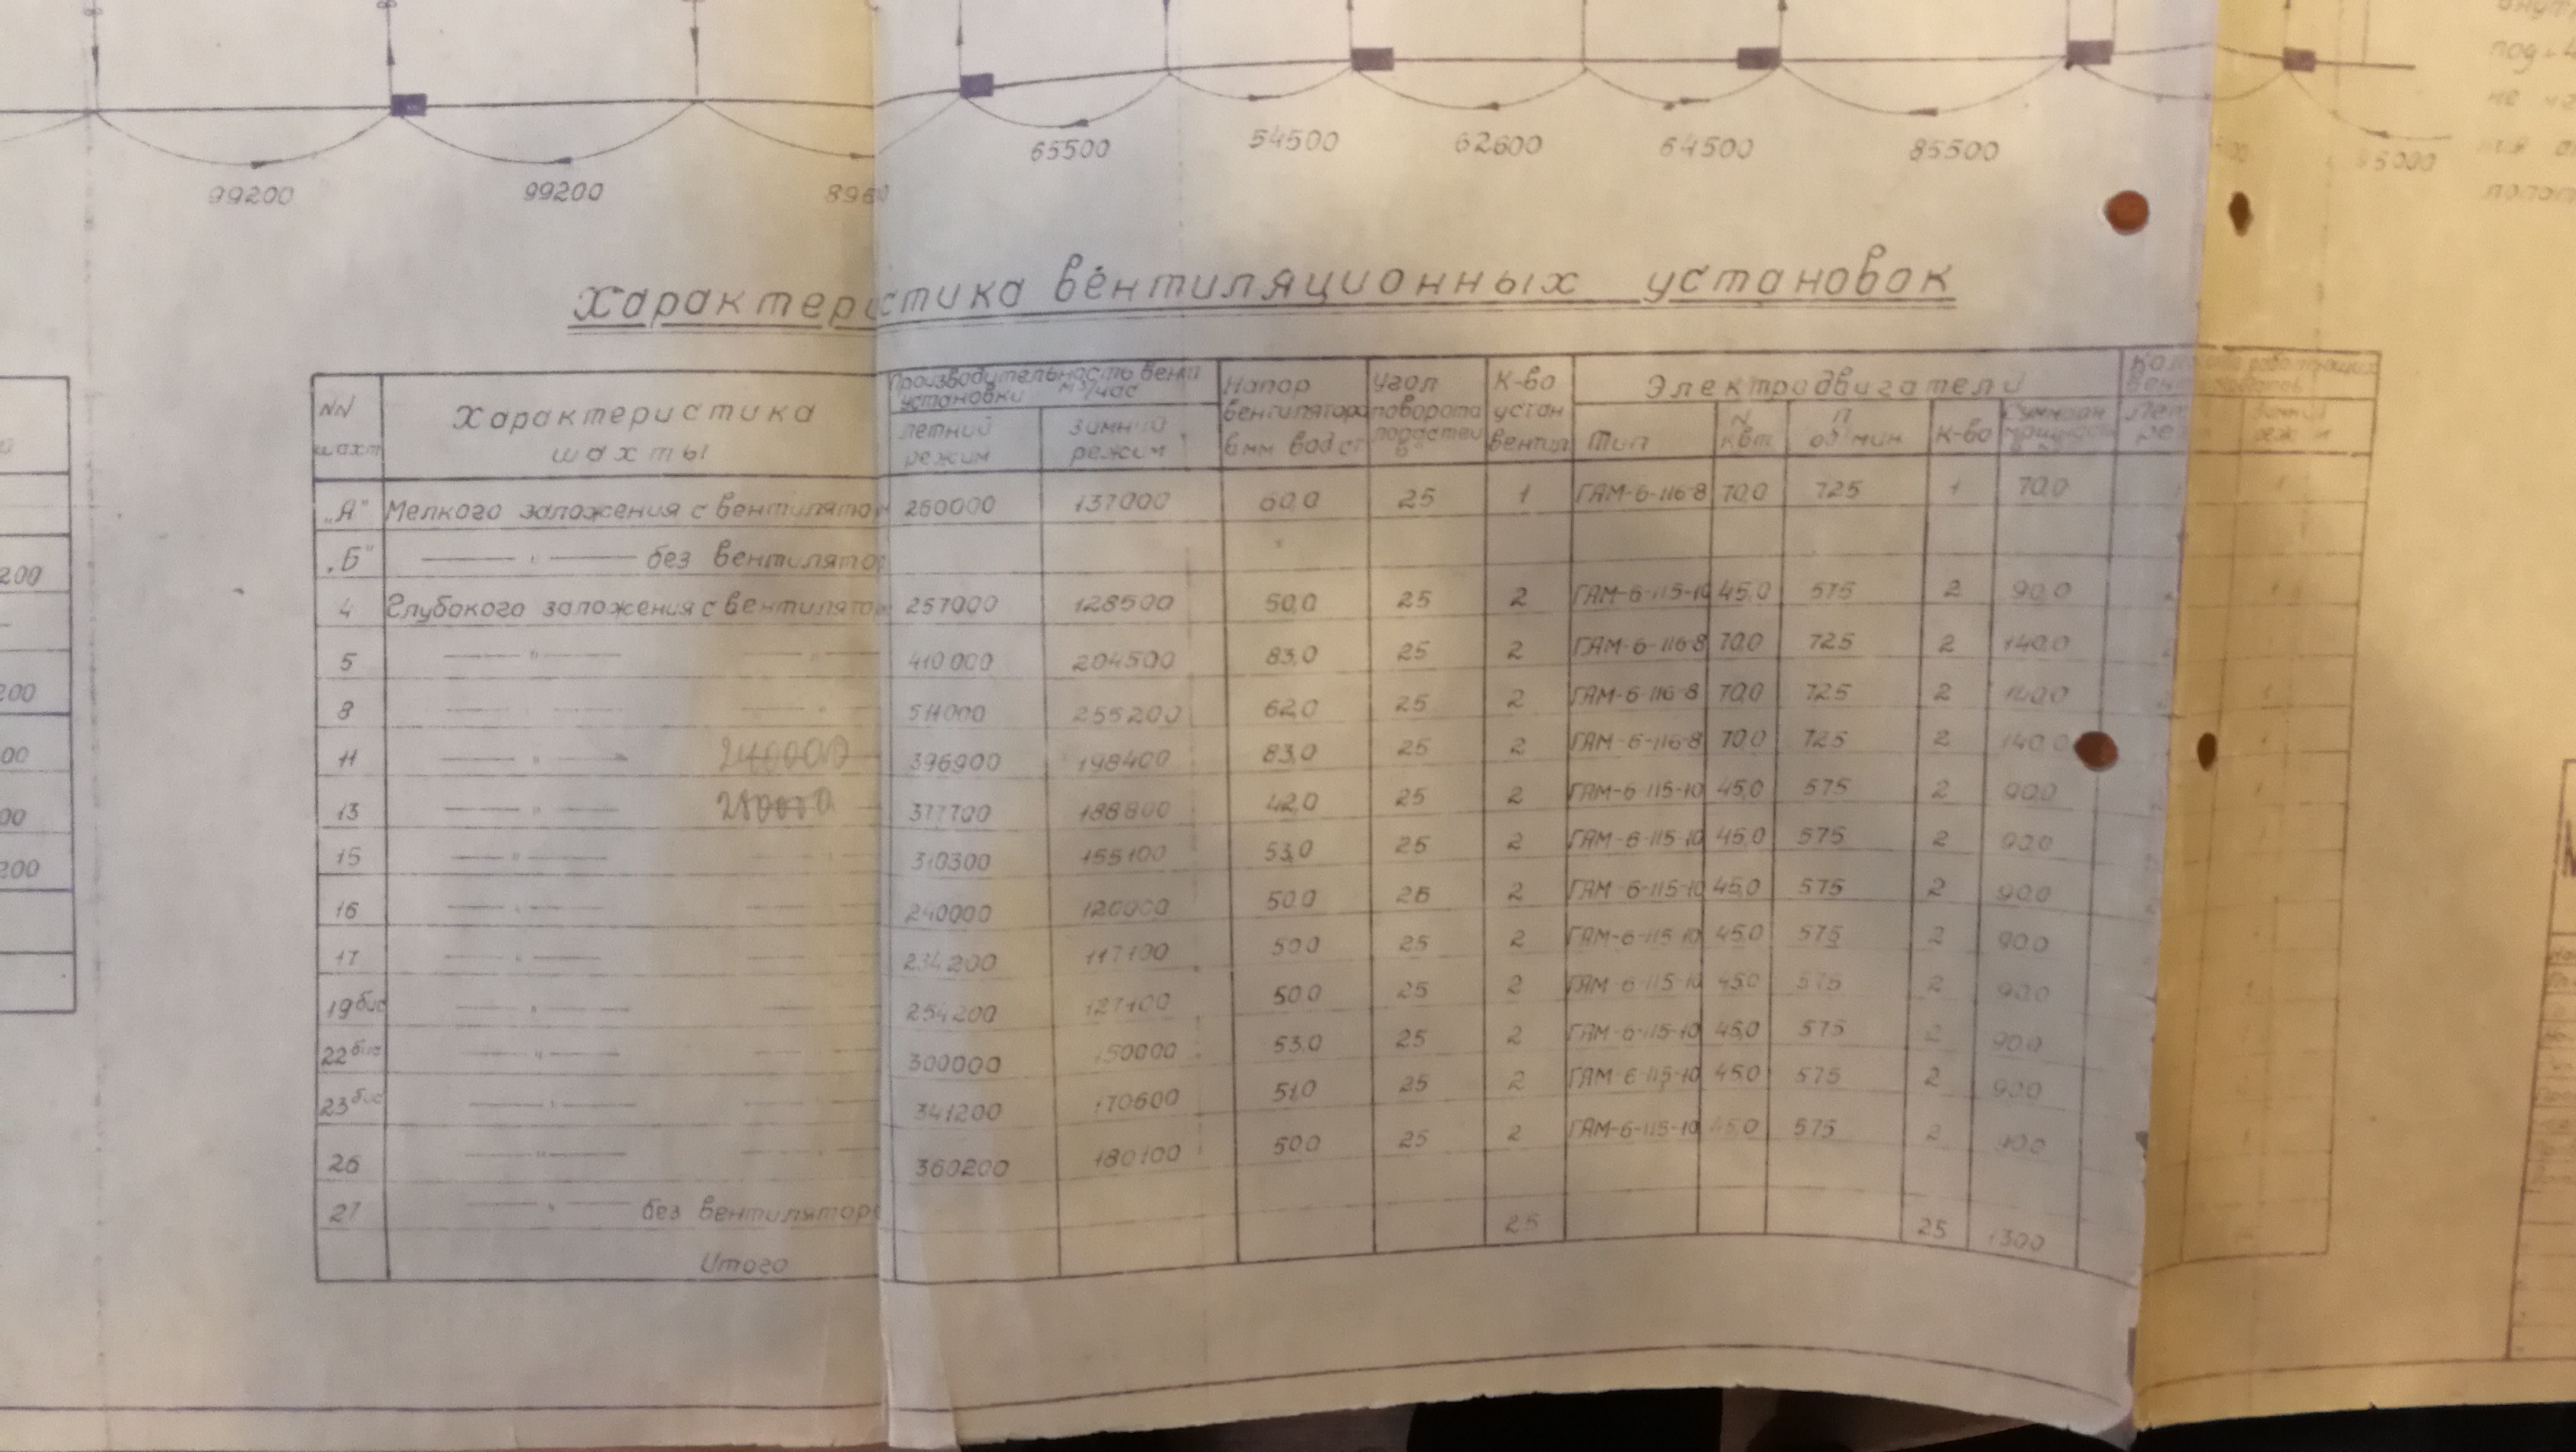 99200 99200 8960 65500 54500 62600 64500 85500 95000
Характеристика вентиляционных установок
NN шахт
Характеристика шахты
Производительность вент установки м³/час
летний режим
зимний режим
Напор вентилятора в мм вод ст
Угол поворота лопастей в°
К-во устан вентил
Электродвигатели
Тип
N квт
п об/мин
К-во
Зимний режим
„А" Мелкого заложения с вентилятор 260000 137000 60,0 25 1 ГАМ-6-116-8 70,0 725 1 70,0
„Б" — " — без вентилятор
4 Глубокого заложения с вентилятор 257000 128500 50,0 25 2 ГАМ-6-115-10 45,0 575 2 90,0
5 — " — — " 410000 204500 83,0 25 2 ГАМ-6-116-8 70,0 725 2 140,0
8 " " 511000 255200 62,0 25 2 ГАМ-6-116-8 70,0 725 2 140,0
11 — " — 240000 396900 198400 83,0 25 2 ГАМ-6-116-8 70,0 725 2 140,0
13 — " — 280000 377700 188800 42,0 25 2 ГАМ-6-115-10 45,0 575 2 90,0
15 — " — 310300 155100 53,0 25 2 ГАМ-6-115-10 45,0 575 2 90,0
16 — " — 240000 120000 50,0 25 2 ГАМ-6-115-10 45,0 575 2 90,0
17 — " — 234200 117100 50,0 25 2 ГАМ-6-115-10 45,0 575 2 90,0
19бис — " — 254200 127100 50,0 25 2 ГАМ-6-115-10 45,0 575 2 90,0
22бис — " — 300000 150000 53,0 25 2 ГАМ-6-115-10 45,0 575 2 90,0
23бис — " — 341200 170600 51,0 25 2 ГАМ-6-115-10 45,0 575 2 90,0
26 — " — 360200 180100 50,0 25 2 ГАМ-6-115-10 45,0 575 2 90,0
27 — " — без вентилятор
Итого 25 25 1300